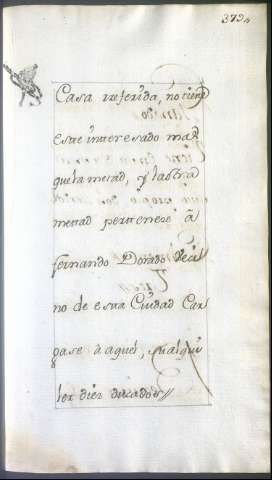 372,,
Casa referida, no tiene
este interesado mas
que la metad, y la otra
metad pertenece â
fernando Dorado Veci
no de esta Ciudad Car
gase â aquel, su alqui
ler diez ducados //